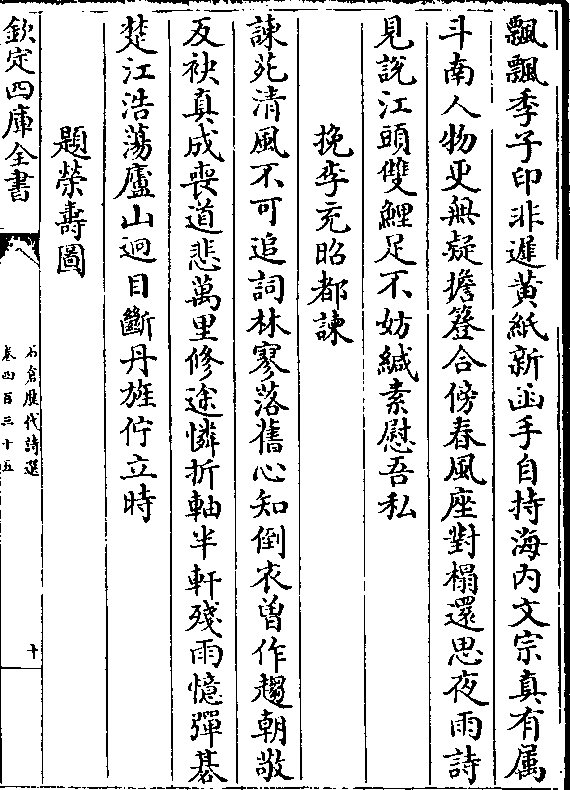 飄飄季子印非遲黄紙新函手自持海内文宗真有属
斗南人物更無疑擔簦合傍春風座對榻還思夜雨詩
見說江頭雙鯉足不妨緘素慰吾私
挽李充昭都諫
諫苑清風不可追詞林寥落舊心知倒衣曽作趨朝敬
反袂真成喪道悲萬里修途憐折軸半軒殘雨憶彈棊
楚江浩蕩廬山迥目斷丹旌佇立時
題榮壽圖
欽定四庫全書
石倉歴代詩選
卷四百三十五
十